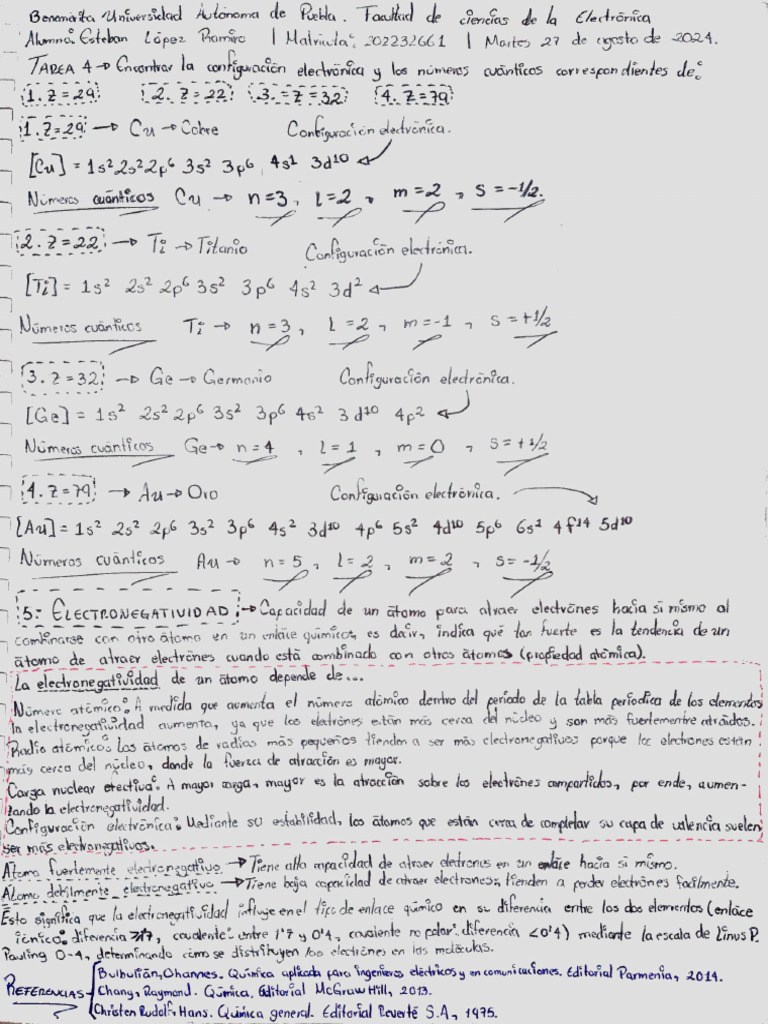 Benemérita Universidad Autónoma de Puebla. Facultad de ciencias de la Electrónica
Alumno: Esteban López Ramiro | Matrícula: 202232661 | Martes 27 de agosto de 2024.
TAREA 4 → Encontrar la configuración electrónica y los números cuánticos correspondientes de:
1. Z=29 2. Z=22 3. Z=32 4. Z=79
1. Z=29 → Cu → Cobre Configuración electrónica.
[Cu] = 1s² 2s² 2p⁶ 3s² 3p⁶ 4s¹ 3d¹⁰
Números cuánticos Cu → n=3, l=2, m=2, s=-1/2.
2. Z=22 → Ti → Titanio Configuración electrónica.
[Ti] = 1s² 2s² 2p⁶ 3s² 3p⁶ 4s² 3d²
Números cuánticos Ti → n=3, l=2, m=-1, s=+1/2
3. Z=32 → Ge → Germanio Configuración electrónica.
[Ge] = 1s² 2s² 2p⁶ 3s² 3p⁶ 4s² 3d¹⁰ 4p²
Números cuánticos Ge → n=4, l=1, m=0, s=+1/2
4. Z=79 → Au → Oro Configuración electrónica.
[Au] = 1s² 2s² 2p⁶ 3s² 3p⁶ 4s² 3d¹⁰ 4p⁶ 5s² 4d¹⁰ 5p⁶ 6s¹ 4f¹⁴ 5d¹⁰
Números cuánticos Au → n=5, l=2, m=2, s=-1/2
5: ELECTRONEGATIVIDAD → Capacidad de un átomo para atraer electrónes hacia si mismo al
combinarse con otro átomo en un enlace químico, es decir, indica qué tan fuerte es la tendencia de un
átomo de atraer electrónes cuando está combinado con otros átomos (propiedad atómica).
La electronegatividad de un átomo depende de...
Número atómico: A medida que aumenta el número atómico dentro del período de la tabla periódica de los elementos
la electronegatividad aumenta, ya que los eletrónes están más cerca del núcleo y son más fuertemente atraídos.
Radio atómico: Los átomos de radios más pequeños tienden a ser más electronegativos porque los electrones están
más cerca del núcleo, donde la fuerza de atracción es mayor.
Carga nuclear efectiva: A mayor carga, mayor es la atracción sobre los electrónes compartidos, por ende, aumen-
tando la electronegatividad.
Configuración electrónica: Mediante su estabilidad, los átomos que están cerca de completar su capa de valencia suelen
ser más electronegativos.
Átomo fuertemente electronegativo → Tiene alta capacidad de atraer electrones en un enlace hacia si mismo.
Átomo debilmente electronegativo → Tiene baja capacidad de atraer electrones; tienden a perder electrónes facilmente.
Esto significa que la electronegatividad influye en el tipo de enlace químico en su diferencia entre los dos elementos (enlace
iónico: diferencia ≥1'7, covalente: entre 1'7 y 0'4, covalente no polar: diferencia <0'4) mediante la escala de Linus P.
Pauling 0-4, determinando cómo se distribuyen los electrónes en las moléculas.
REFERENCIAS
Bulbulian, Ohannes. Química aplicada para ingenieros eléctricos y en comunicaciones. Editorial Parmenia, 2014.
Chany, Raymond. Química. Editorial McGraw Hill, 2013.
Christen Rudolf, Hans. Química general. Editorial Reverté S.A, 1975.